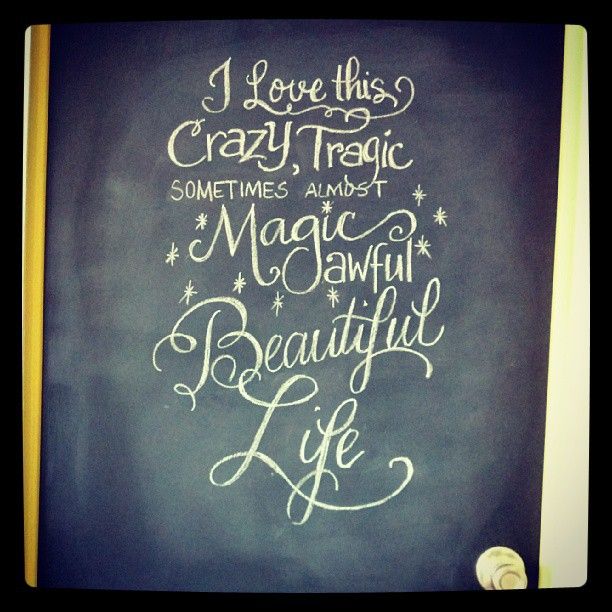 I Love this
Crazy, Tragic
SOMETIMES ALMOST
Magic
awful
Beautiful
Life